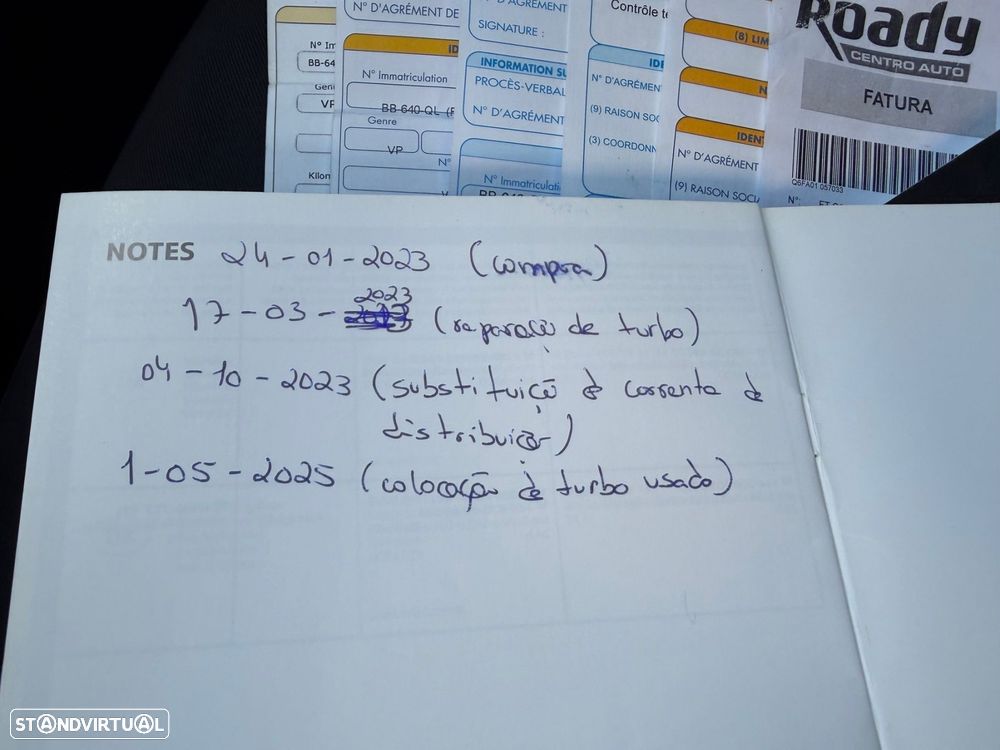 N° D'AGRÉMENT DE
D'AGRÉMENT
SIGNATURE :
Contrôle te
(8) LIM
Roady
CENTRO AUTO
FATURA
N° Im
BB-64
VP
Kilon
ID
N° Immatriculation
BB-640-QL (F
Genre
VP
N°
INFORMATION SU
PROCÈS-VERBAL
N° D'AGRÉMENT
N° Immatriculati
IDE
N° D'AGRÉMEN
(9) RAISON SOC
(3) COORDONN
N
IDENT
N° D'AGRÉMENT
(9) RAISON SOCI
Q6FA01 057033
N°:
NOTES 24-01-2023 (compra)
17-03-2023 (reparação de turbo)
04-10-2023 (substituição de corrente de
distribuição)
1-05-2025 (colocação de turbo usado)
STANDVIRTUAL